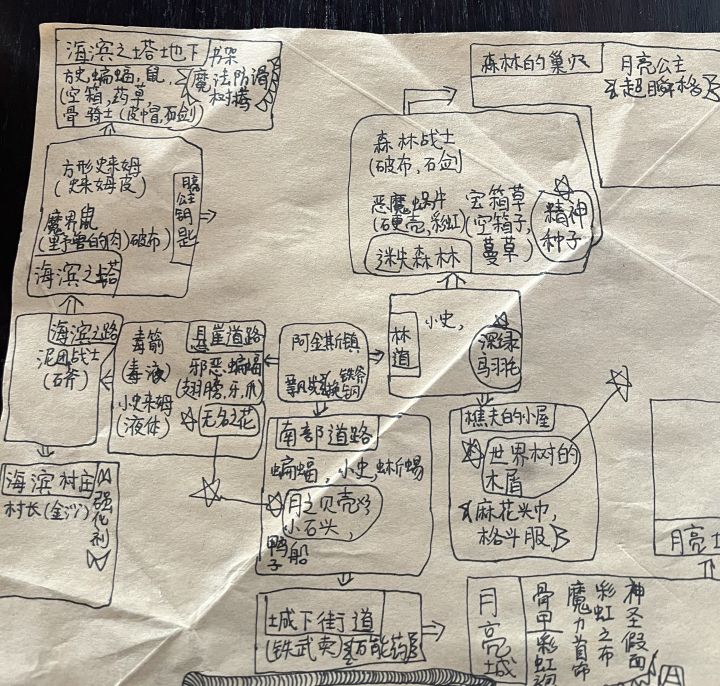 海滨之塔地下
书架
方史蝙蝠,鼠,
(空箱,药草)
骨骑士(皮帽,石剑)
魔法防滑
树搭
方形史来姆
(史来姆皮)
魔界鼠
(野兽的肉)破布
月亮公主钥匙
海滨之塔
海滨之路
泥团战士
(石斧)
海滨村庄
村长(金沙)
强化剂
毒箭
(毒液)
小史来姆
(液体)
悬崖道路
邪恶蝙蝠
(翅膀,牙,爪)
无名之花
阿金斯镇
铁斧
铜
南部道路
蝙蝠,小史,蜥蜴
月之贝壳
小石头,
鸭子
船
城下街道
(铁武卖)万能药
林道
小史,
深绿
鸟羽毛
樵夫的小屋
世界树的
木屑
麻花头巾,
格斗服
森林战士
(破布,石剑)
恶魔蜗牛
(硬壳,彩虹)
宝箱草
(空箱子,
蔓草)
精神
种子
迷失森林
森林的巢穴
月亮公主
超瞬格
月亮士
月亮城
骨甲彩虹
魔力首饰
彩虹之布
神圣假面